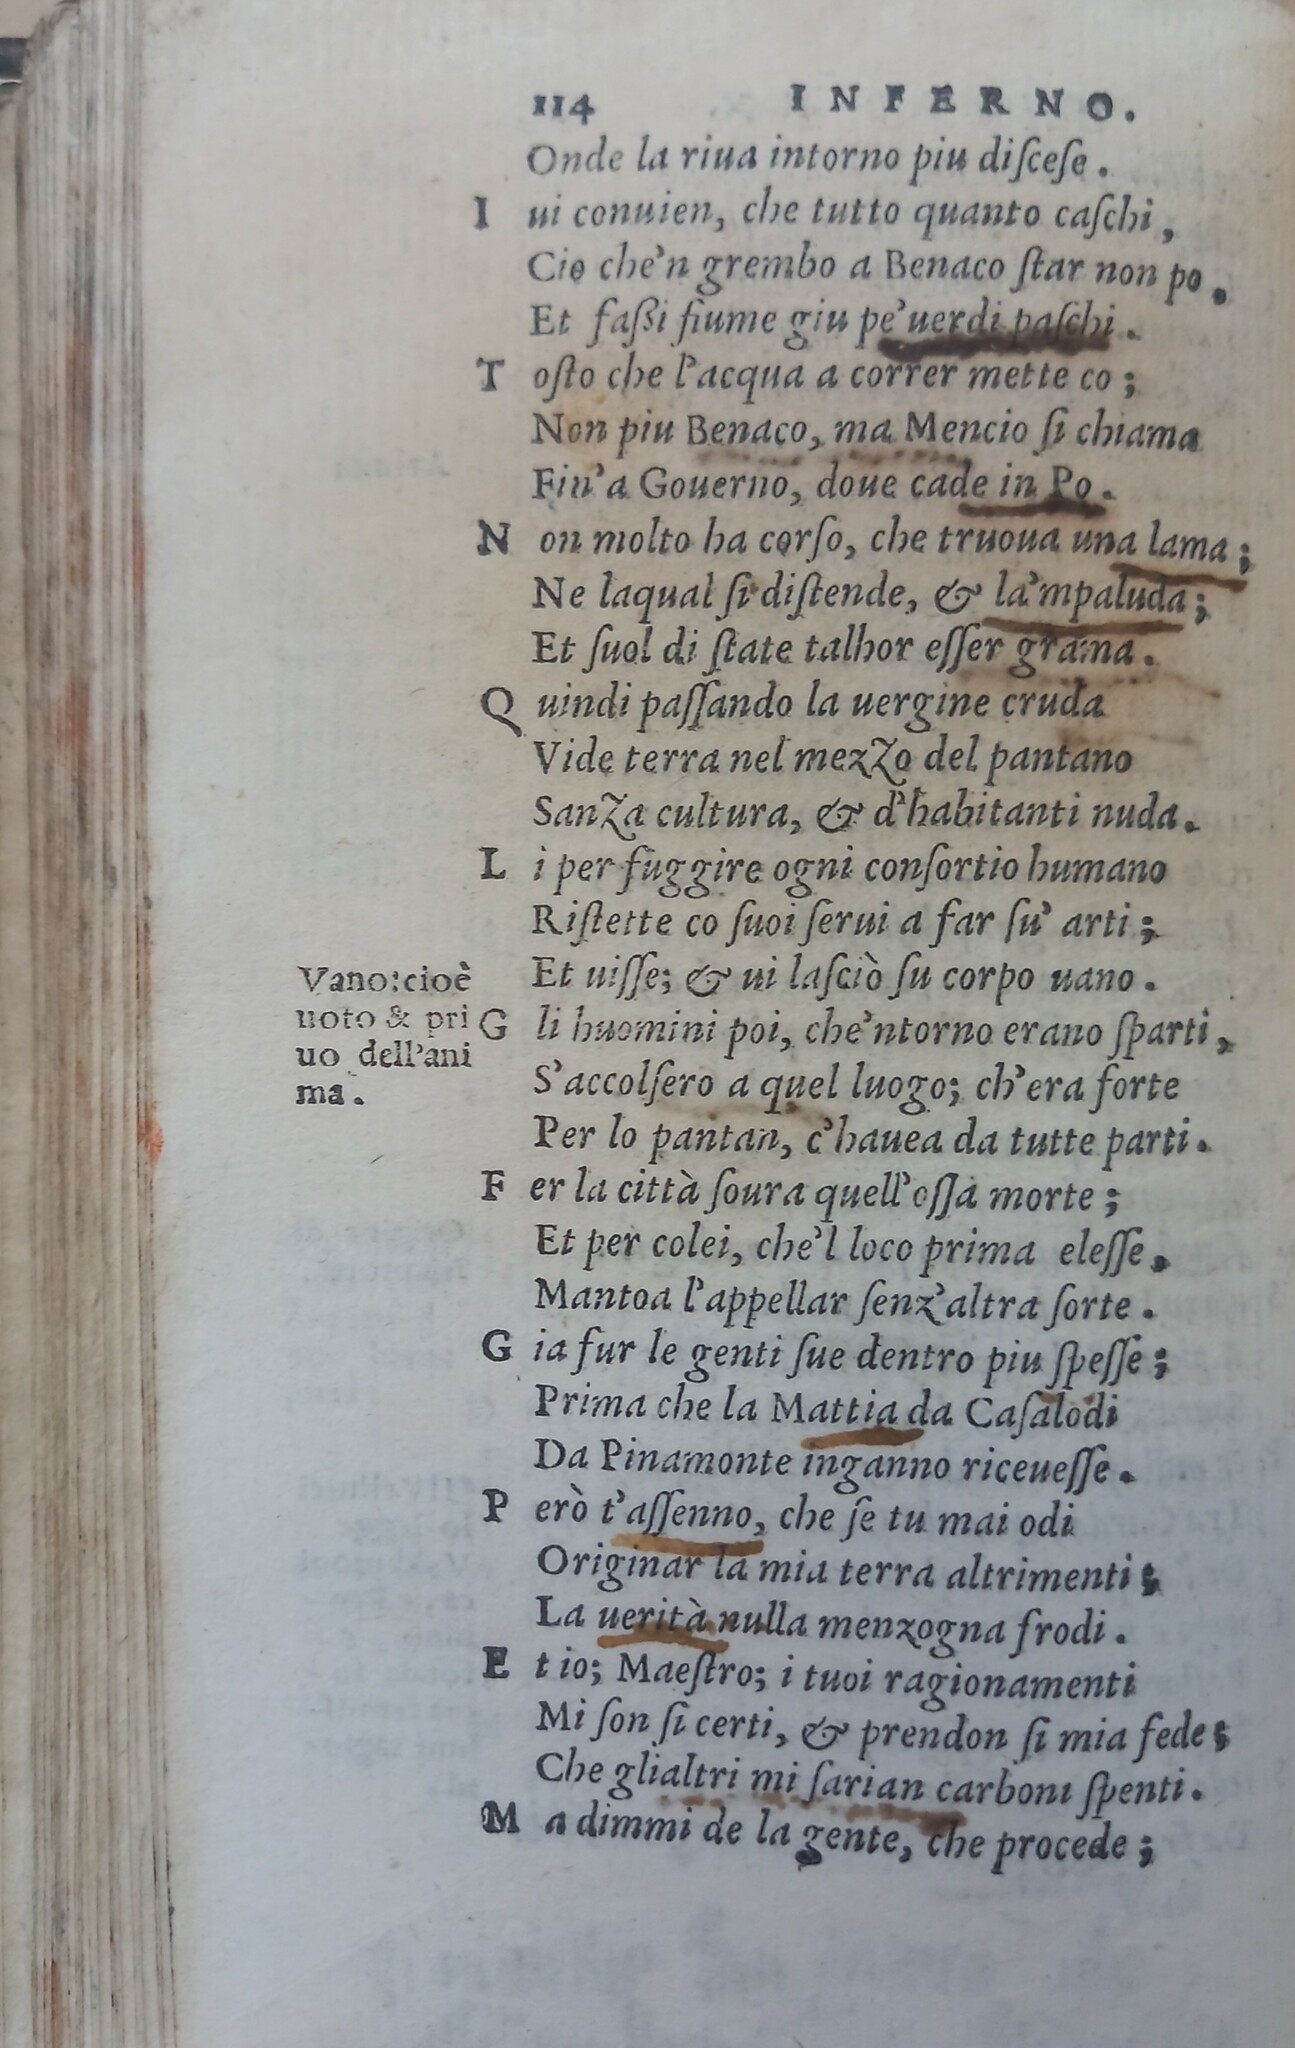 114 INFERNO.
Onde la riua intorno piu diſceſe.
I ui conuien, che tutto quanto caſchi,
Cio che'n grembo a Benaco ſtar non po.
Et faßi fiume giu pe'uerdi paſchi.
T oſto che l'acqua a correr mette co;
Non piu Benaco, ma Mencio ſi chiama
Fin'a Gouerno, doue cade in Po.
N on molto ha corſo, che truoua una lama;
Ne laqual ſi diſtende, & la'mpaluda;
Et ſuol di ſtate talhor eſſer grama.
Q uindi paſſando la uergine cruda
Vide terra nel mezzo del pantano
Sanza cultura, & d'habitanti nuda.
L i per fuggire ogni conſortio humano
Riſtette co ſuoi ſerui a far ſu' arti;
Et uiſſe; & ui laſciò ſu corpo uano.
G li huomini poi, che'ntorno erano ſparti,
S'accolſero a quel luogo; ch'era forte
Per lo pantan, c'hauea da tutte parti.
F er la città ſoura quell'oſſa morte;
Et per colei, che'l loco prima eleſſe,
Mantoa l'appellar ſenz'altra ſorte.
G ia fur le genti ſue dentro piu ſpeſſe;
Prima che la Mattia da Caſalodi
Da Pinamonte inganno riceueſſe.
P erò t'aſſenno, che ſe tu mai odi
Originar la mia terra altrimenti;
La uerità nulla menzogna frodi.
E t io; Maeſtro; i tuoi ragionamenti
Mi ſon ſi certi, & prendon ſi mia fede;
Che glialtri mi ſarian carboni ſpenti.
M a dimmi de la gente, che procede;
Vano:cioè
uoto & pri
uo dell'ani
ma.